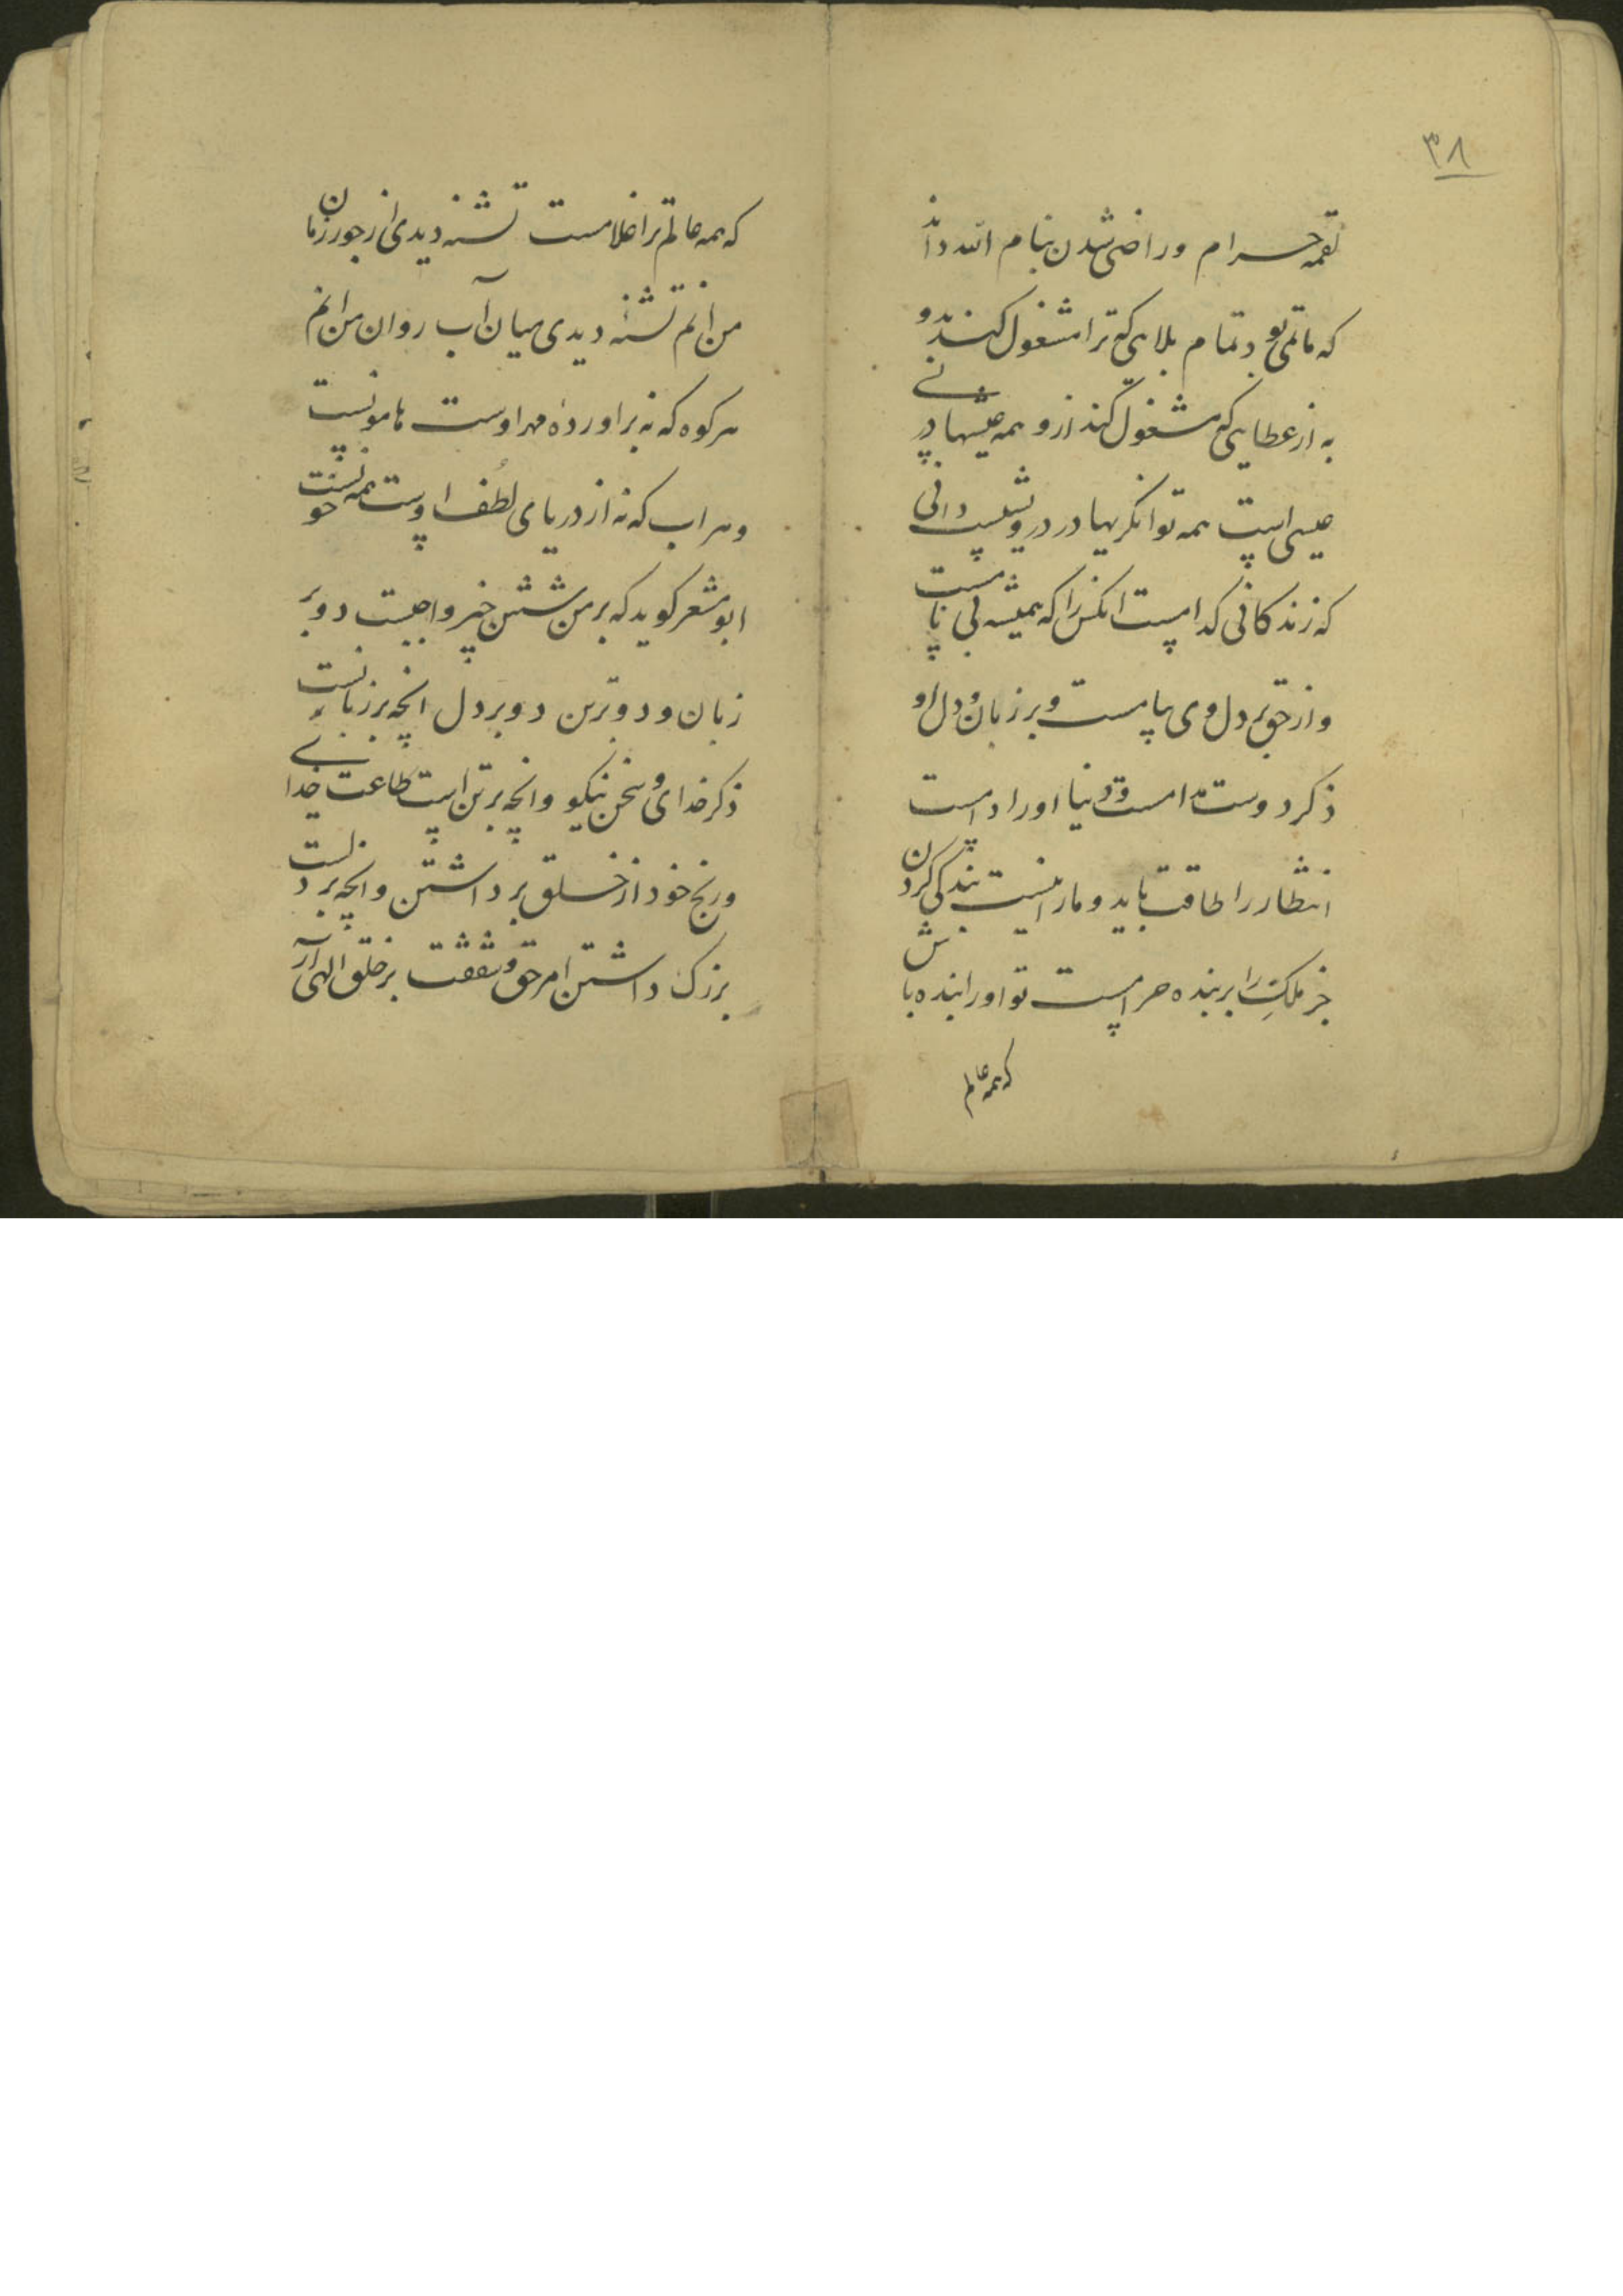 ۳۸
لقمه حرام و راضی شدن بنام الله داند
که ماتمی بود تمام بلایی که ترا مشغول کند بدو
به از عطایی که مشغول کند ازو همه عیشها در
عیسی است همه توانکریها در درویشیست دانی
که زندکانی کدامست انکس را که همیشه بی نا
و از حق بر دل وی پیامست و بر زبان و دل او
ذکر دوست مدامست و دنیا او را دامست
انتظار را طاقت باید و ما را نیست بندکی کردن
جز ملک را بر بنده حرامست تو او را بنده باش
که همه عالم
که همه عالم ترا غلامست تشنه دیدی از جور زمان
من انم تشنه دیدی میان آب روان من انم
هر کوه که نه براورده مهر اوست هامونست
و هر اب که نه از دریای لطف اوست همه خونست
ابو مشعر کوید که بر من شش چیز واجبست دو بر
زبان و دو بر تن دو بر دل انچه بر زبانست
ذکر خدای و سخن نیکو و انچه بر تن است طاعت خدا
و رنج خود از خلق برداشتن و انچه بر دلست
بزرک داشتن امر حق و شفقت بر خلق الهی ار